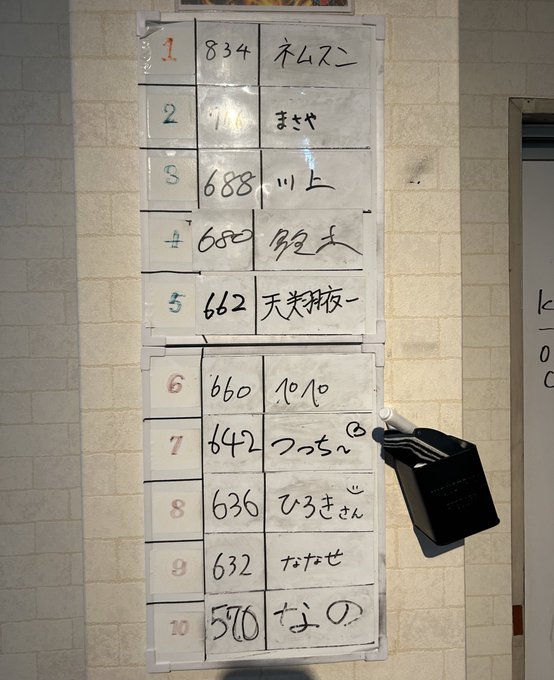 1 834 ネムスン
2 まさや
3 688 川上
4 680
5 662 天翔夜一
6 660 ペペ
7 642 つっち〜
8 636 ひろきさん
9 632 ななせ
10 570 なの